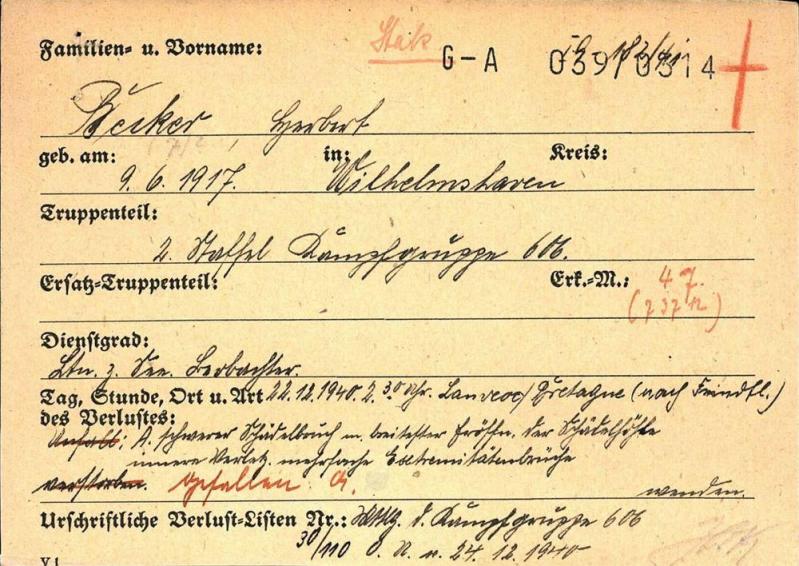 Familien- u. Vorname: Stek G-A 039/0314
Becker, Herbert
geb. am: in: Kreis:
9.6.1917. Wilhelmshaven
Truppenteil:
2. Staffel Kampfgruppe 606.
Ersatz-Truppenteil: Erk.-M.: 47.
(73712)
Dienstgrad:
Ltn. z. See. Beobachter.
Tag, Stunde, Ort u. Art 22.12.1940. 2.30 Uhr. Lanveoc/Bretagne (nach Feindfl.)
des Verlustes:
schwerer Schädelbruch m. breitester Eröffn. der Schädelhöhle
innere Verletz. mehrfache Extremitätenbrüche
verstorben. gefallen wenden.
Urschriftliche Verlust-Listen Nr.: d. Kampfgruppe 606
30/110 v. 24.12.1940
V 1